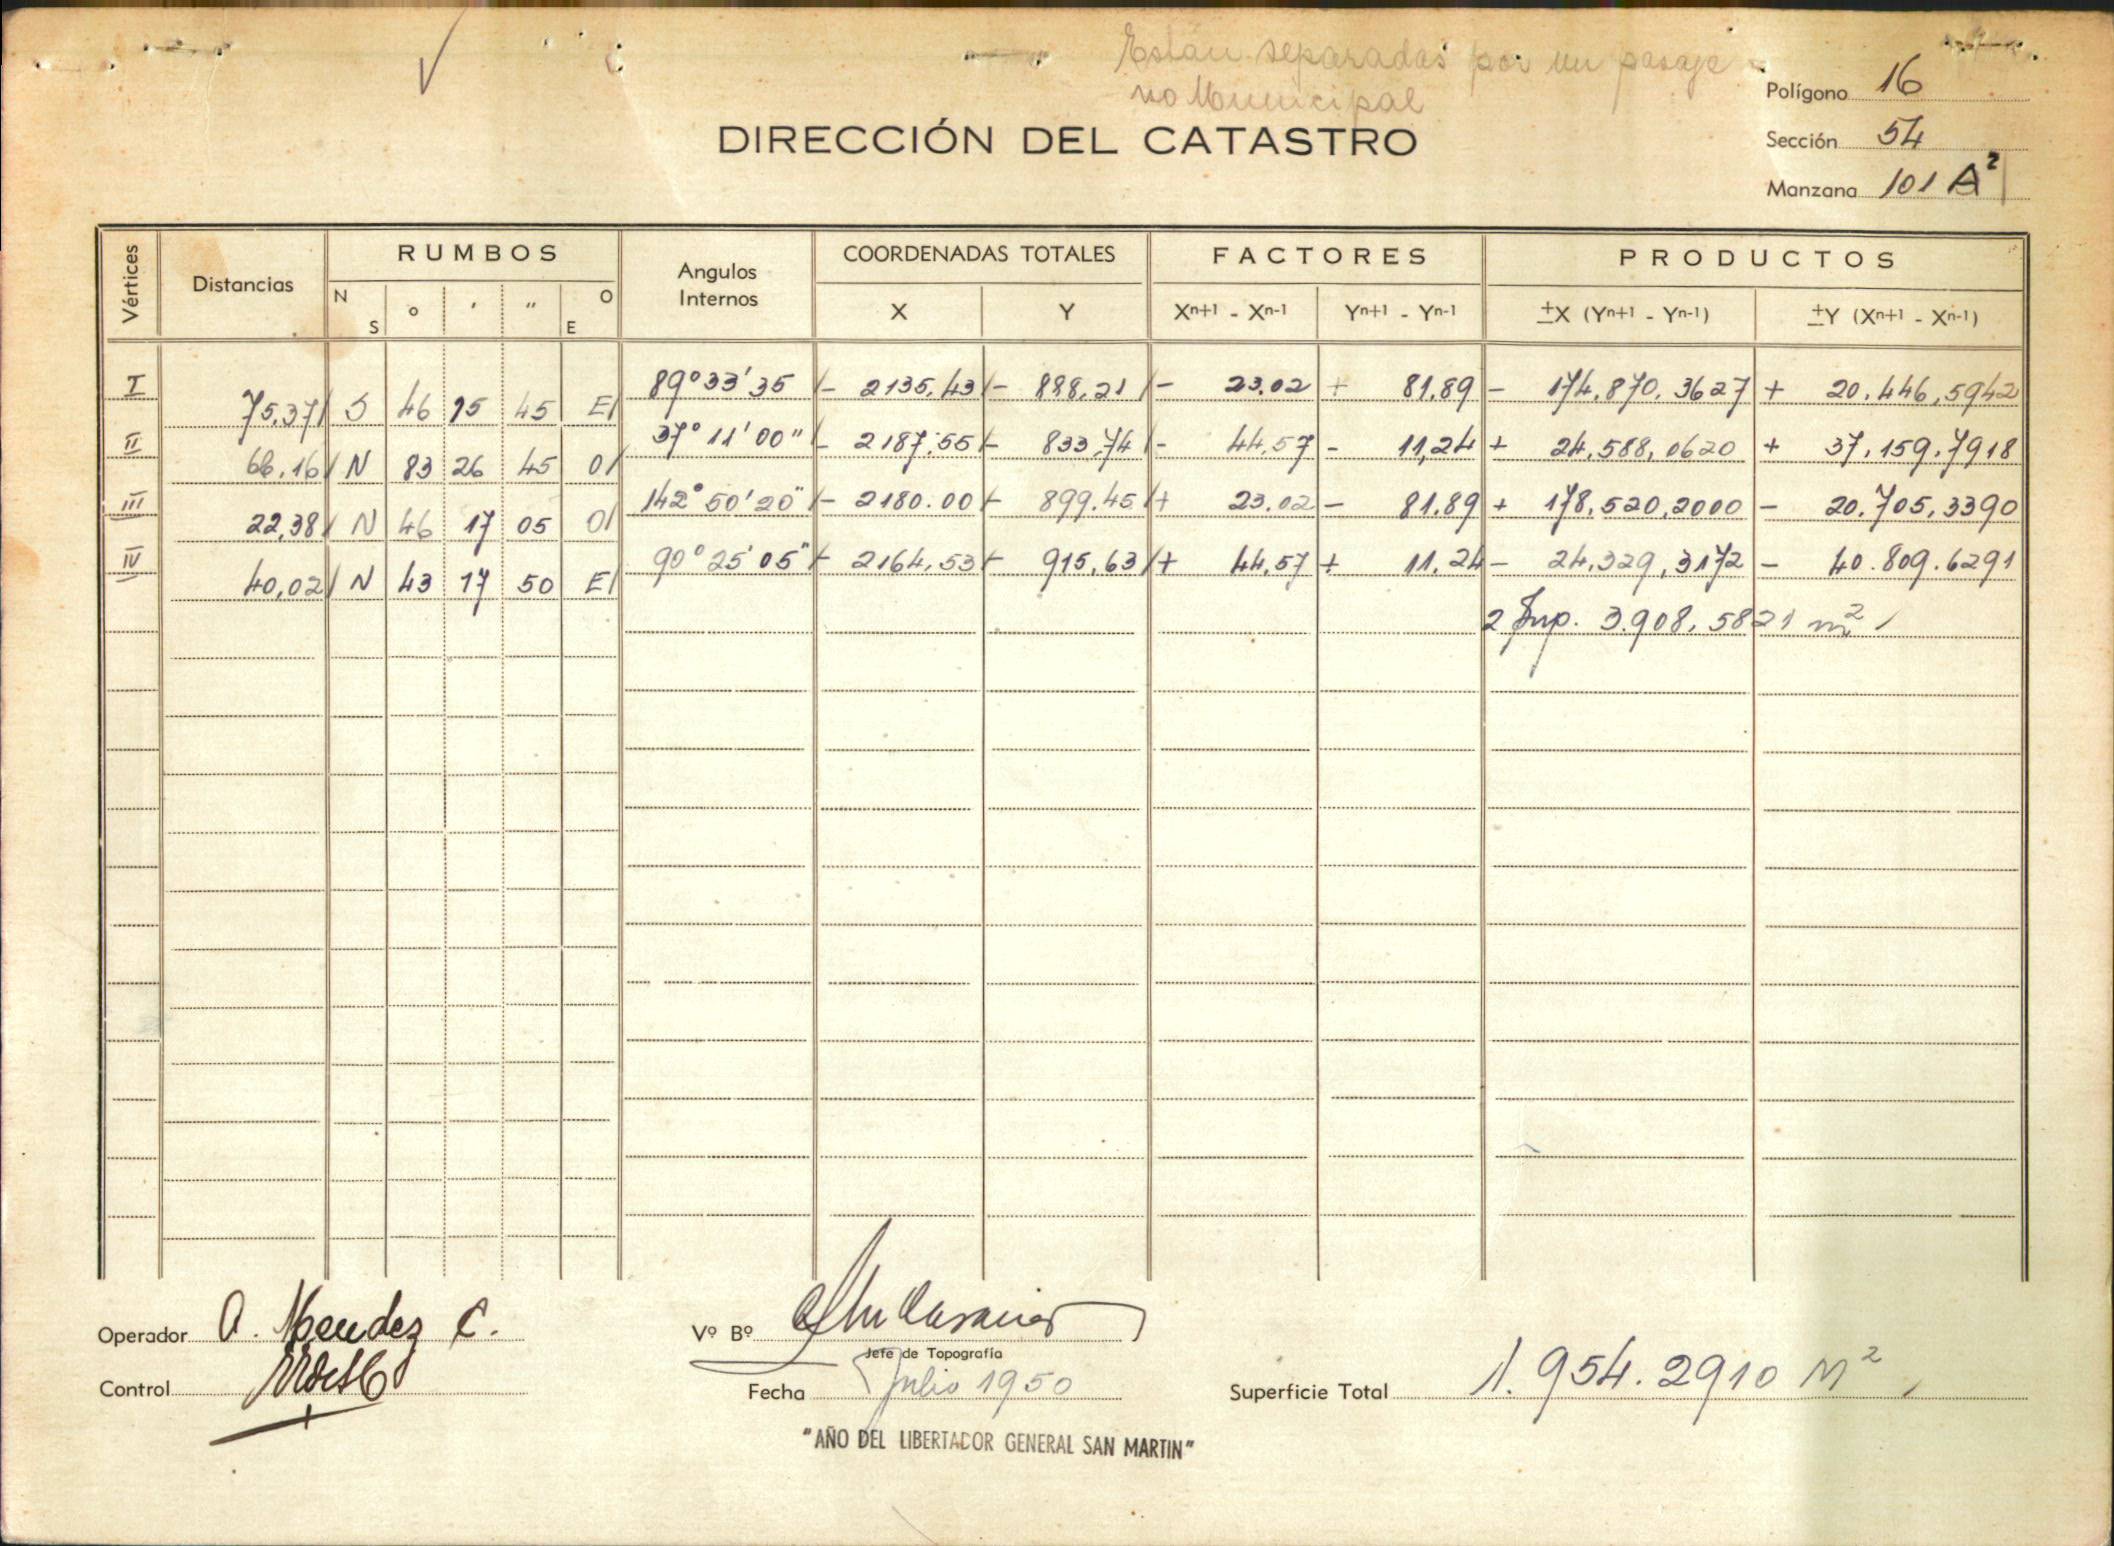 Están separadas por un pasaje
no Municipal
Polígono 16
DIRECCIÓN DEL CATASTRO
Sección 54
Manzana 101 A²
Vértices Distancias RUMBOS Angulos Internos COORDENADAS TOTALES FACTORES PRODUCTOS
N S ° ' " O E X Y Xⁿ⁺¹ - Xⁿ⁻¹ Yⁿ⁺¹ - Yⁿ⁻¹ ±X (Yⁿ⁺¹ - Yⁿ⁻¹) ±Y (Xⁿ⁺¹ - Xⁿ⁻¹)
I 89°33'35 - 2135,43 - 888,21 - 23.02 + 81.89 - 174.870,3627 + 20.446,5942
75,37 S 46 15 45 E
II 37°11'00" - 2187,55 - 833,74 - 44,57 - 11,24 + 24.588,0620 + 37.159,7918
66,16 N 83 26 45 O
III 142°50'20" - 2180.00 - 899.45 + 23.02 - 81.89 + 178.520,2000 - 20.705,3390
22,38 N 46 17 05 O
IV 90°25'05" - 2164,53 - 915,63 + 44,57 + 11.24 - 24.329,3172 - 40.809.6291
40,02 N 43 17 50 E
2 Sup. 3.908,5821 m²
Operador A. Mendez C.
Vº Bº
Jefe de Topografía
Control
Fecha Julio 1950
Superficie Total 1.954.2910 M²
"AÑO DEL LIBERTADOR GENERAL SAN MARTIN"